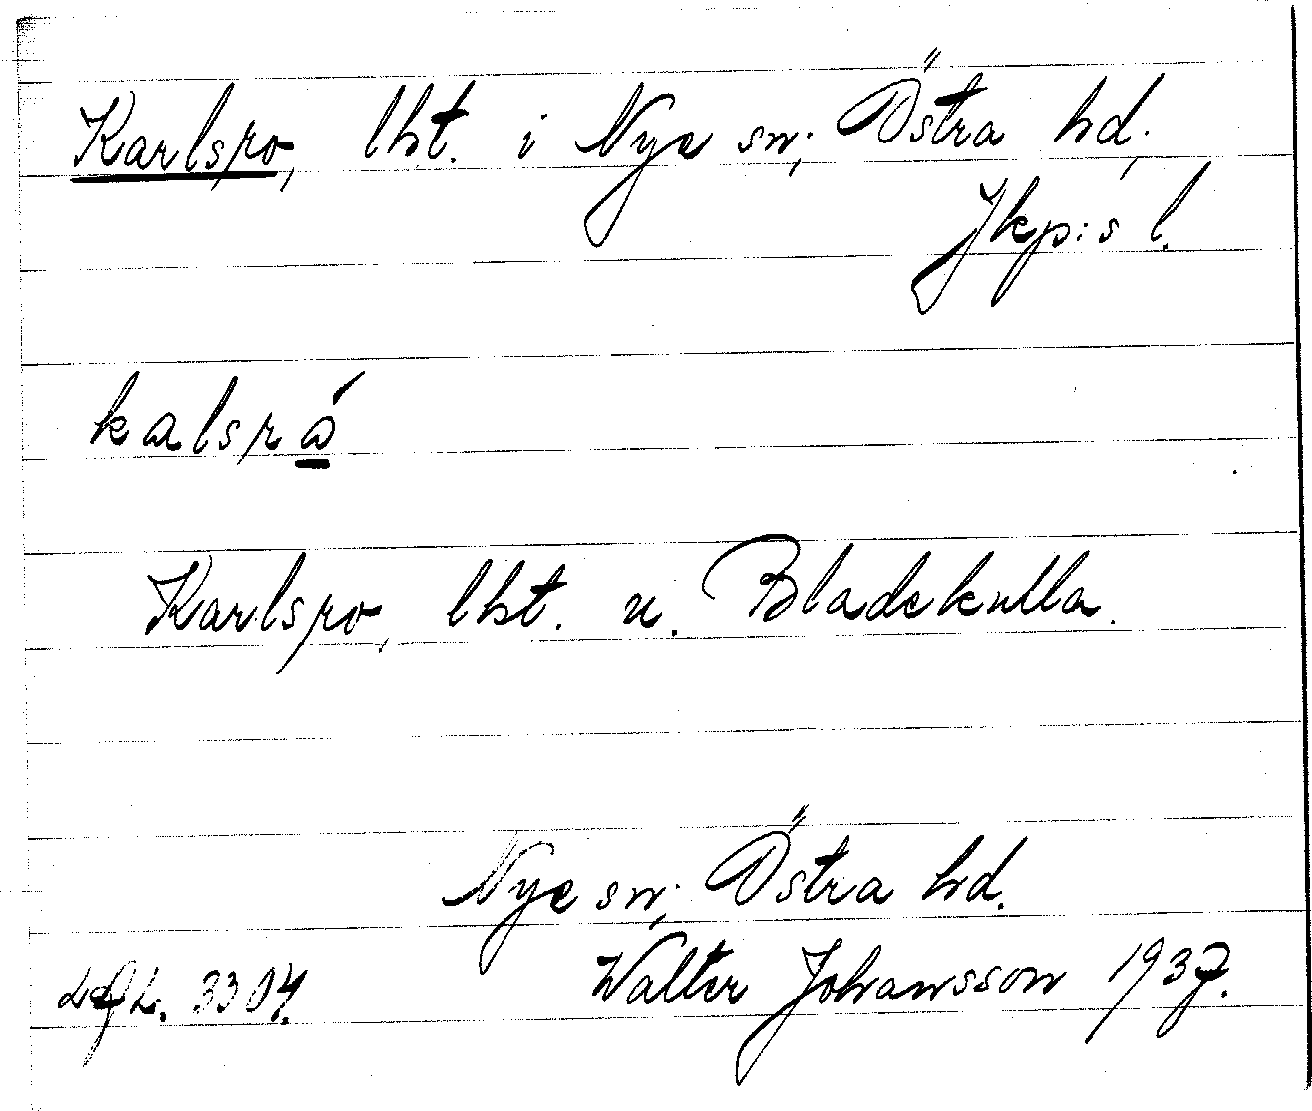 Karlsro, lht. i Nye sn; Östra hd.
Jkp:s l.
kalsró
Karlsro, lht. u. Bladekulla.
Nye sn; Östra hd.
Walter Johansson 1937.
3304.